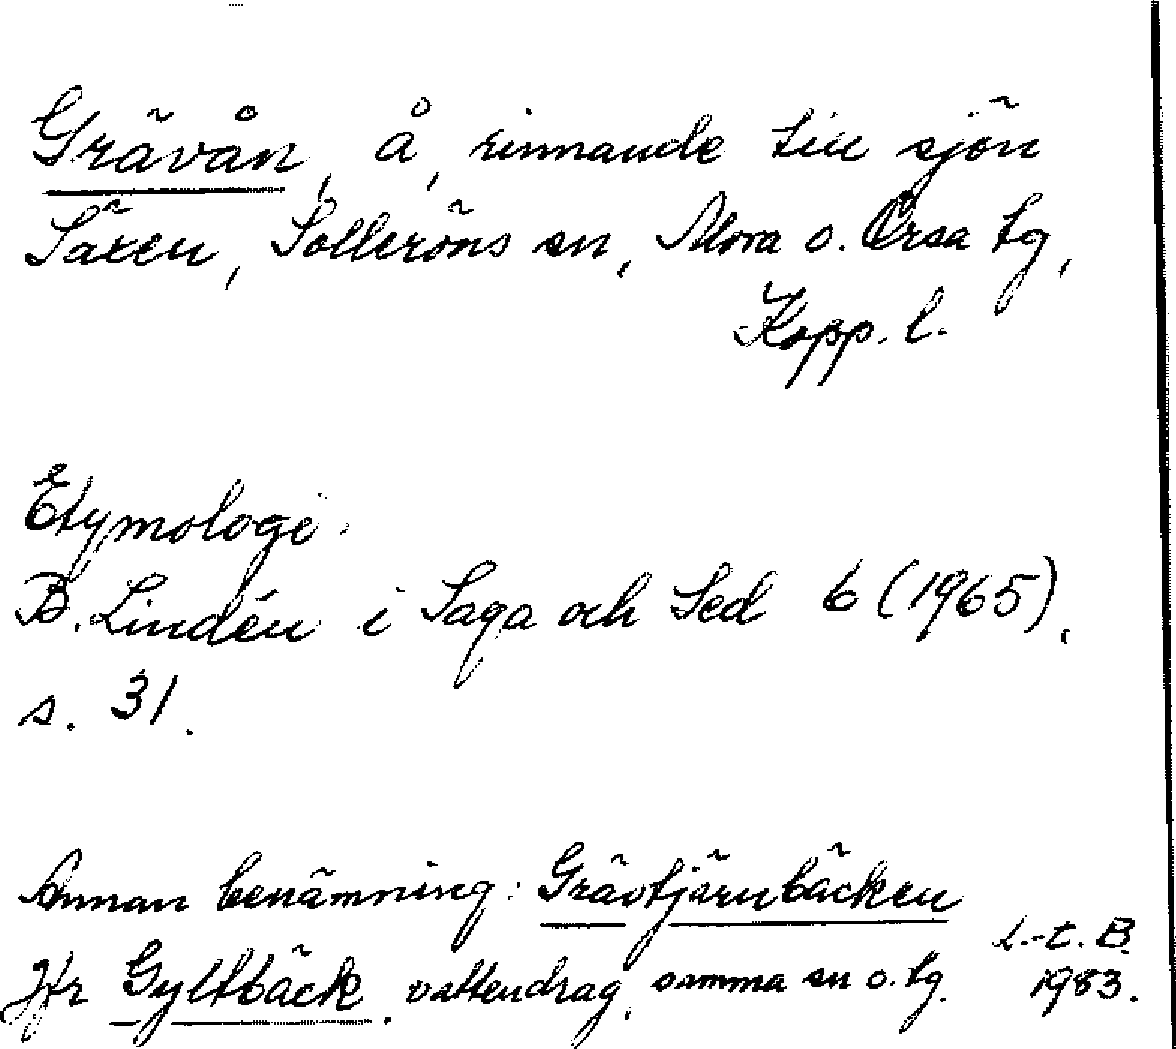 Grävån, å, rinnande till sjön
Säxen, Solleröns sn, Mora o. Orsa tg,
Kopp. l.
Etymologi:
B. Lindén i Saga och Sed 6 (1965),
s. 31.
Annan benämning: Grävtjärnbäcken
Jfr Gyltbäck, vattendrag, samma sn o. tg.
L.-t. B.
1983.